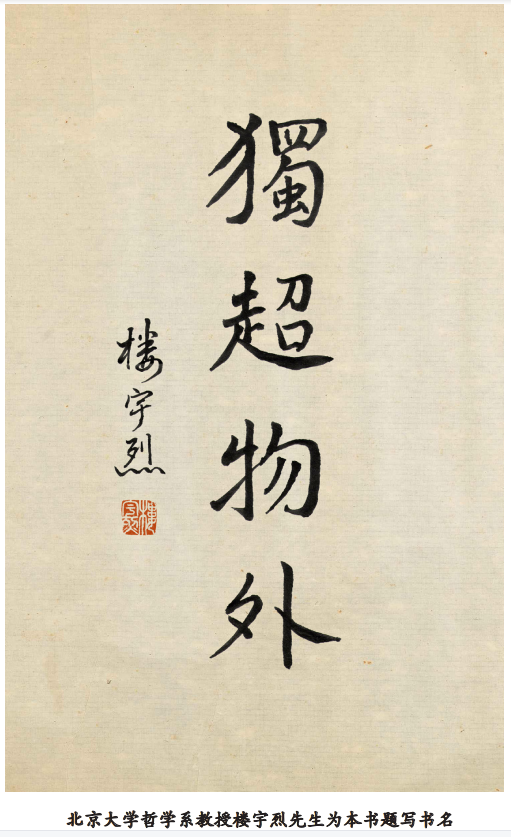 獨超物外
楼宇烈
北京大学哲学系教授楼宇烈先生为本书题写书名